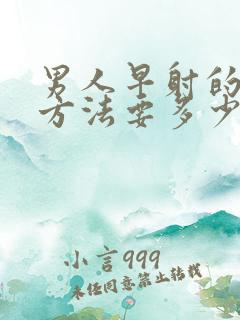 男人早射的
方法要多少
小言999
未经同意禁止转载